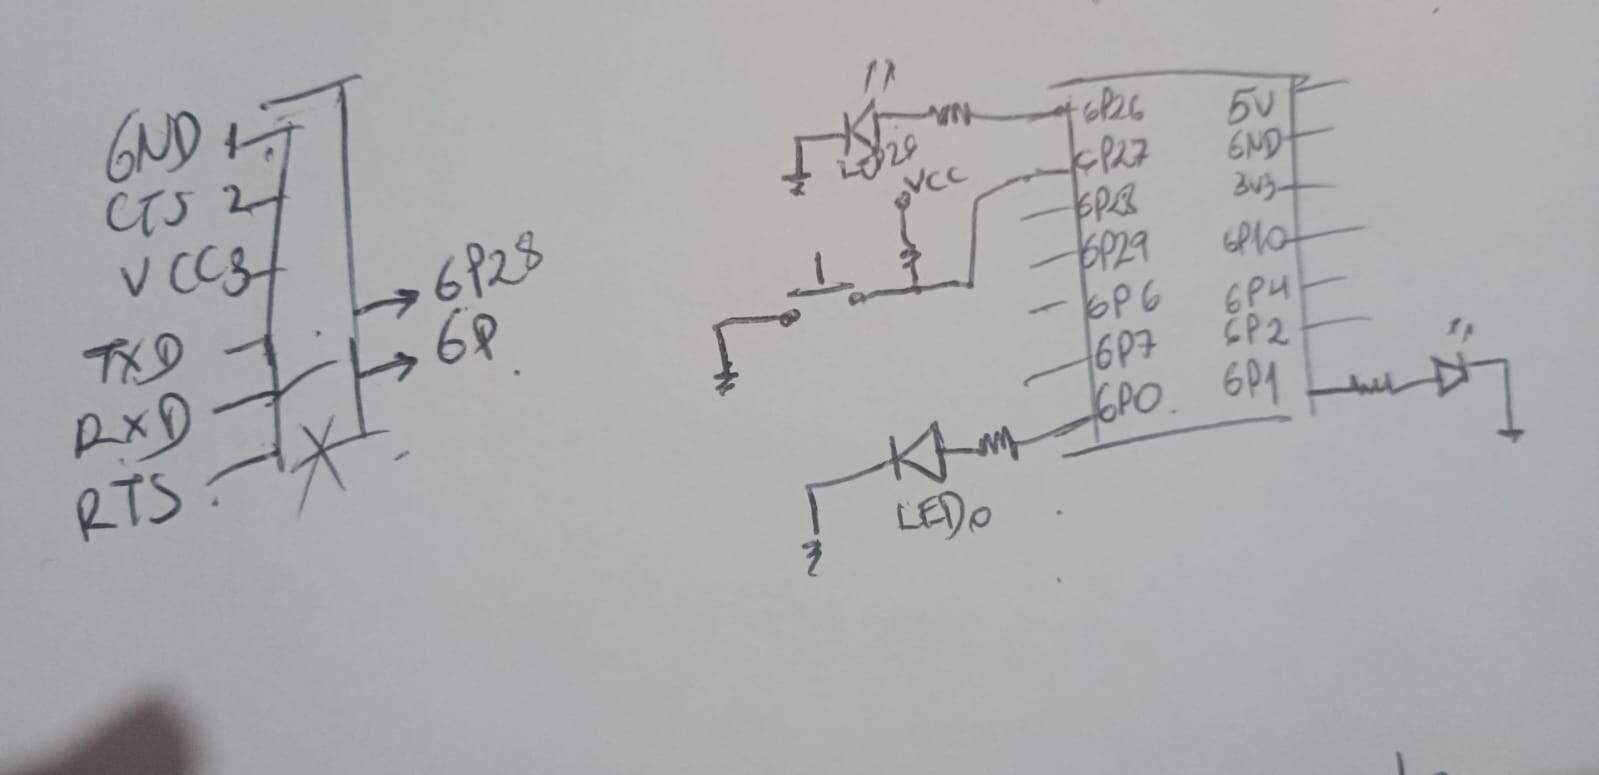 GND 1
CTS 2
VCC 3
TXD
RXD
RTS
GP28
GP
VCC
LED0
GP26
GP27
GP28
GP29
GP6
GP7
GP0
5V
GND
3V3
GP10
GP4
GP2
GP1